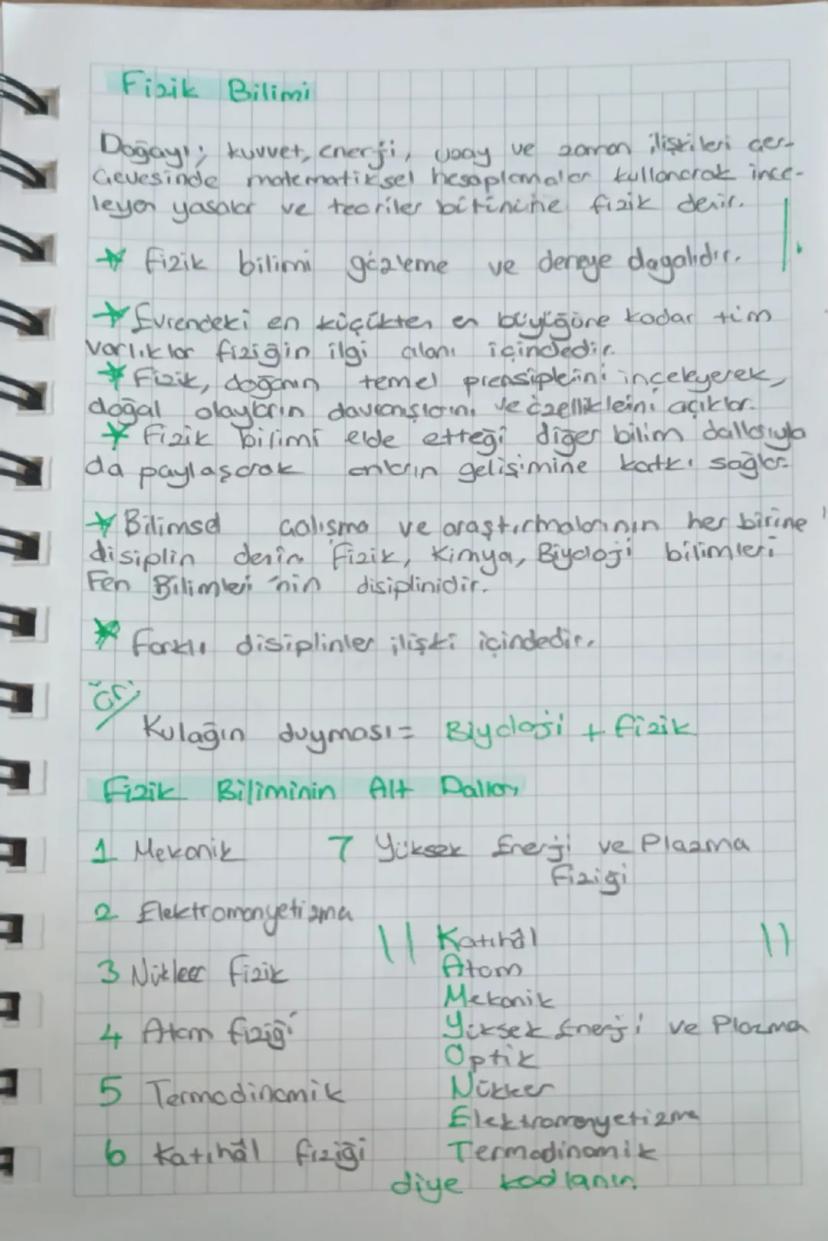 Fizik Bilimi
Doğayı; kuvvet, enerji, uzay ve zaman ilişkileri çer-
çevesinde matematiksel hesaplamalar kullanarak ince-
leyen yasalar ve teoriler bütününe fizik denir.
★ Fizik bilimi gözleme ve deneye dayalıdır.
★ Evrendeki en küçükten en büyüğüne kadar tüm
varlıklar fiziğin ilgi alanı içindedir.
★ Fizik, doğanın temel prensipleini inceleyerek,
doğal olayların davranışlarını ve özellikleini açıklar.
★ Fizik bilimi elde etteği diğer bilim dallarıyla
da paylaşarak onların gelişimine katkı sağlar.
★ Bilimsel çalışma ve araştırmalarının her birine
disiplin denir. Fizik, Kimya, Biyoloji bilimleri
Fen Bilimleri'nin disiplinidir.
★ Farklı disiplinler ilişki içindedir.
Ör;
Kulağın duyması = Biyoloji + Fizik
Fizik Biliminin Alt Dalları
1 Mekanik
7 Yüksek Enerji ve Plazma
Fiziği
2 Elektromanyetizma
3 Nükleer Fizik
4 Atom fiziği
5 Termodinamik
6 Katıhâl fiziği
Katıhâl
Atom
Mekanik
Yüksek Enerji ve Plazma
Optik
Nükleer
Elektromanyetizma
Termodinamik
diye kodlanın